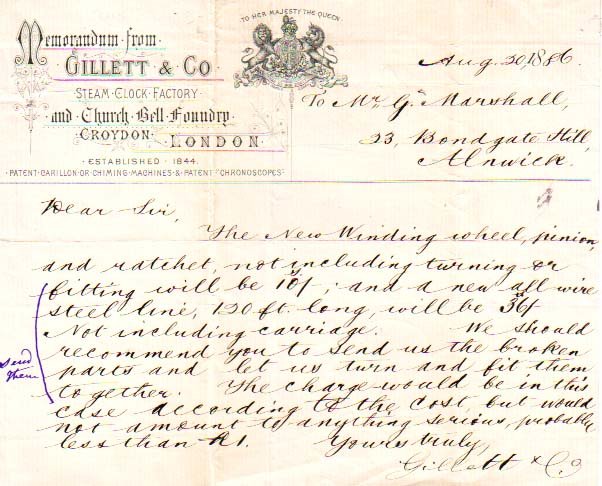 TO HER MAJESTY THE QUEEN
Memorandum from
GILLETT & CO
STEAM CLOCK FACTORY
and Church Bell Foundry
CROYDON LONDON
ESTABLISHED 1844.
PATENT CARILLON OR CHIMING MACHINES & PATENT "CHRONOSCOPES"
Aug. 20, 1886.
To Mr G. Marshall,
23, Bondgate Hill,
Alnwick.
Dear Sir,
The New Winding wheel, pinion,
and ratchet, not including turning or
fitting will be 10/; and a new all wire
steel line, 120 ft. long, will be 36/
Not including carriage. We should
recommend you to send us the broken
parts and let us turn and fit them
together. The charge would be in this
case according to the cost, but would
not amount to anything serious, probably
less than £1. Yours truly,
Gillett & Co
send them